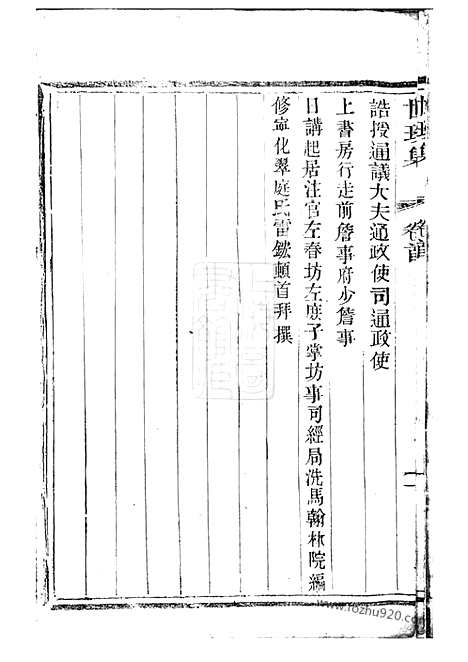 誥授通議大夫通政使司通政使
上書房行走前詹事府少詹事
日講起居注官左春坊左庶子掌坊事司經局洗馬翰林院編
修寧化翠庭氏雷鋐頓首拜撰
卷首
一
www.rozhu920.com